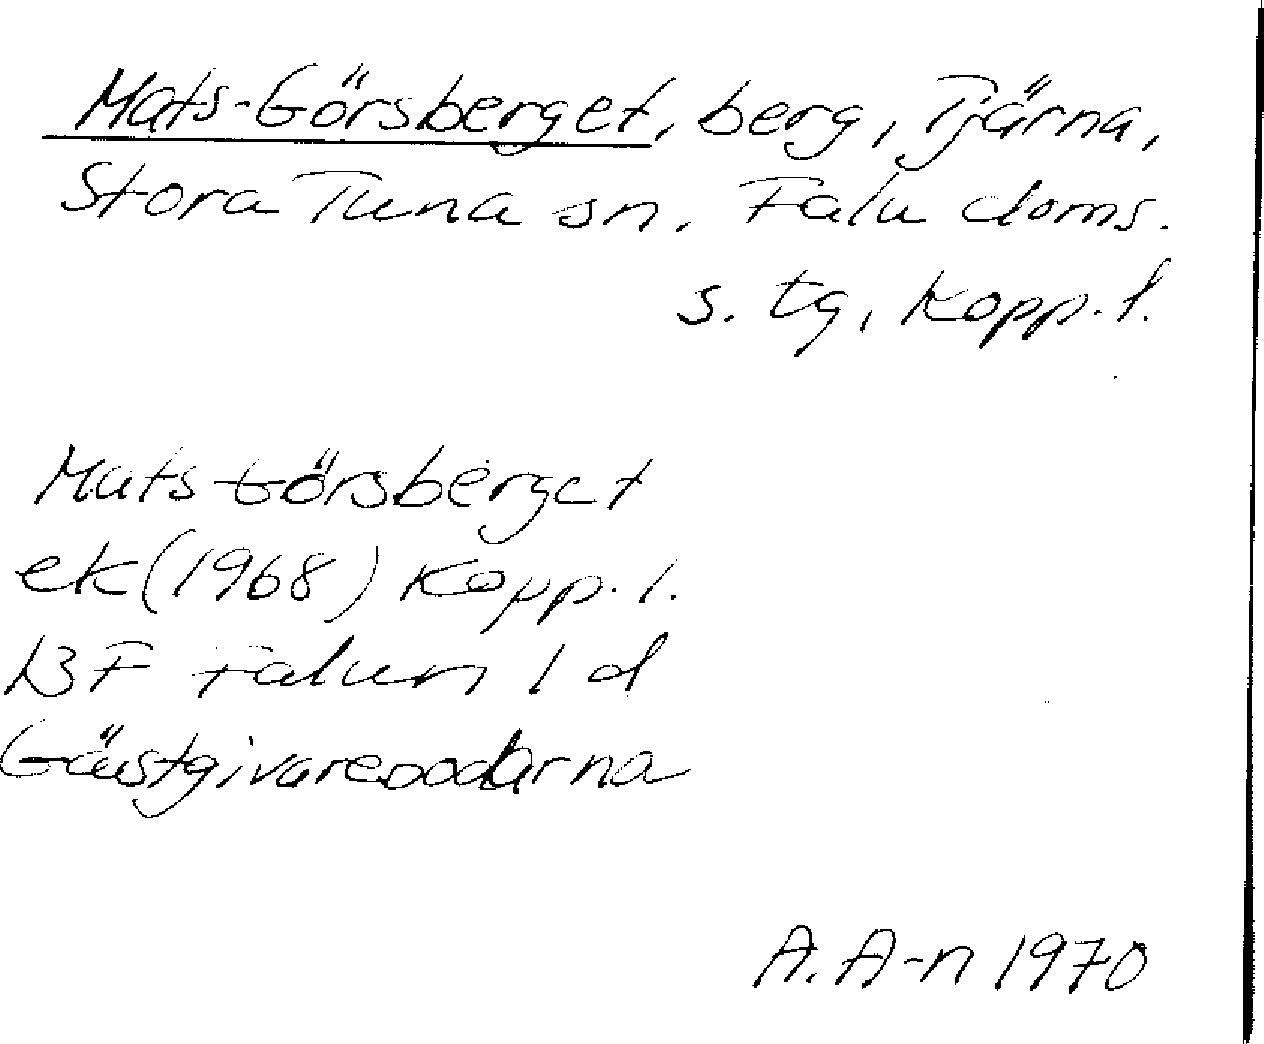 Mats-Görsberget, berg, Tjärna,
Stora Tuna sn, Falu doms.
s. tg, Kopp. l.
Mats Görsberget
ek (1968) Kopp. l.
BF Falun 1 d
Gästgivarebodarna
A. A-n 1970